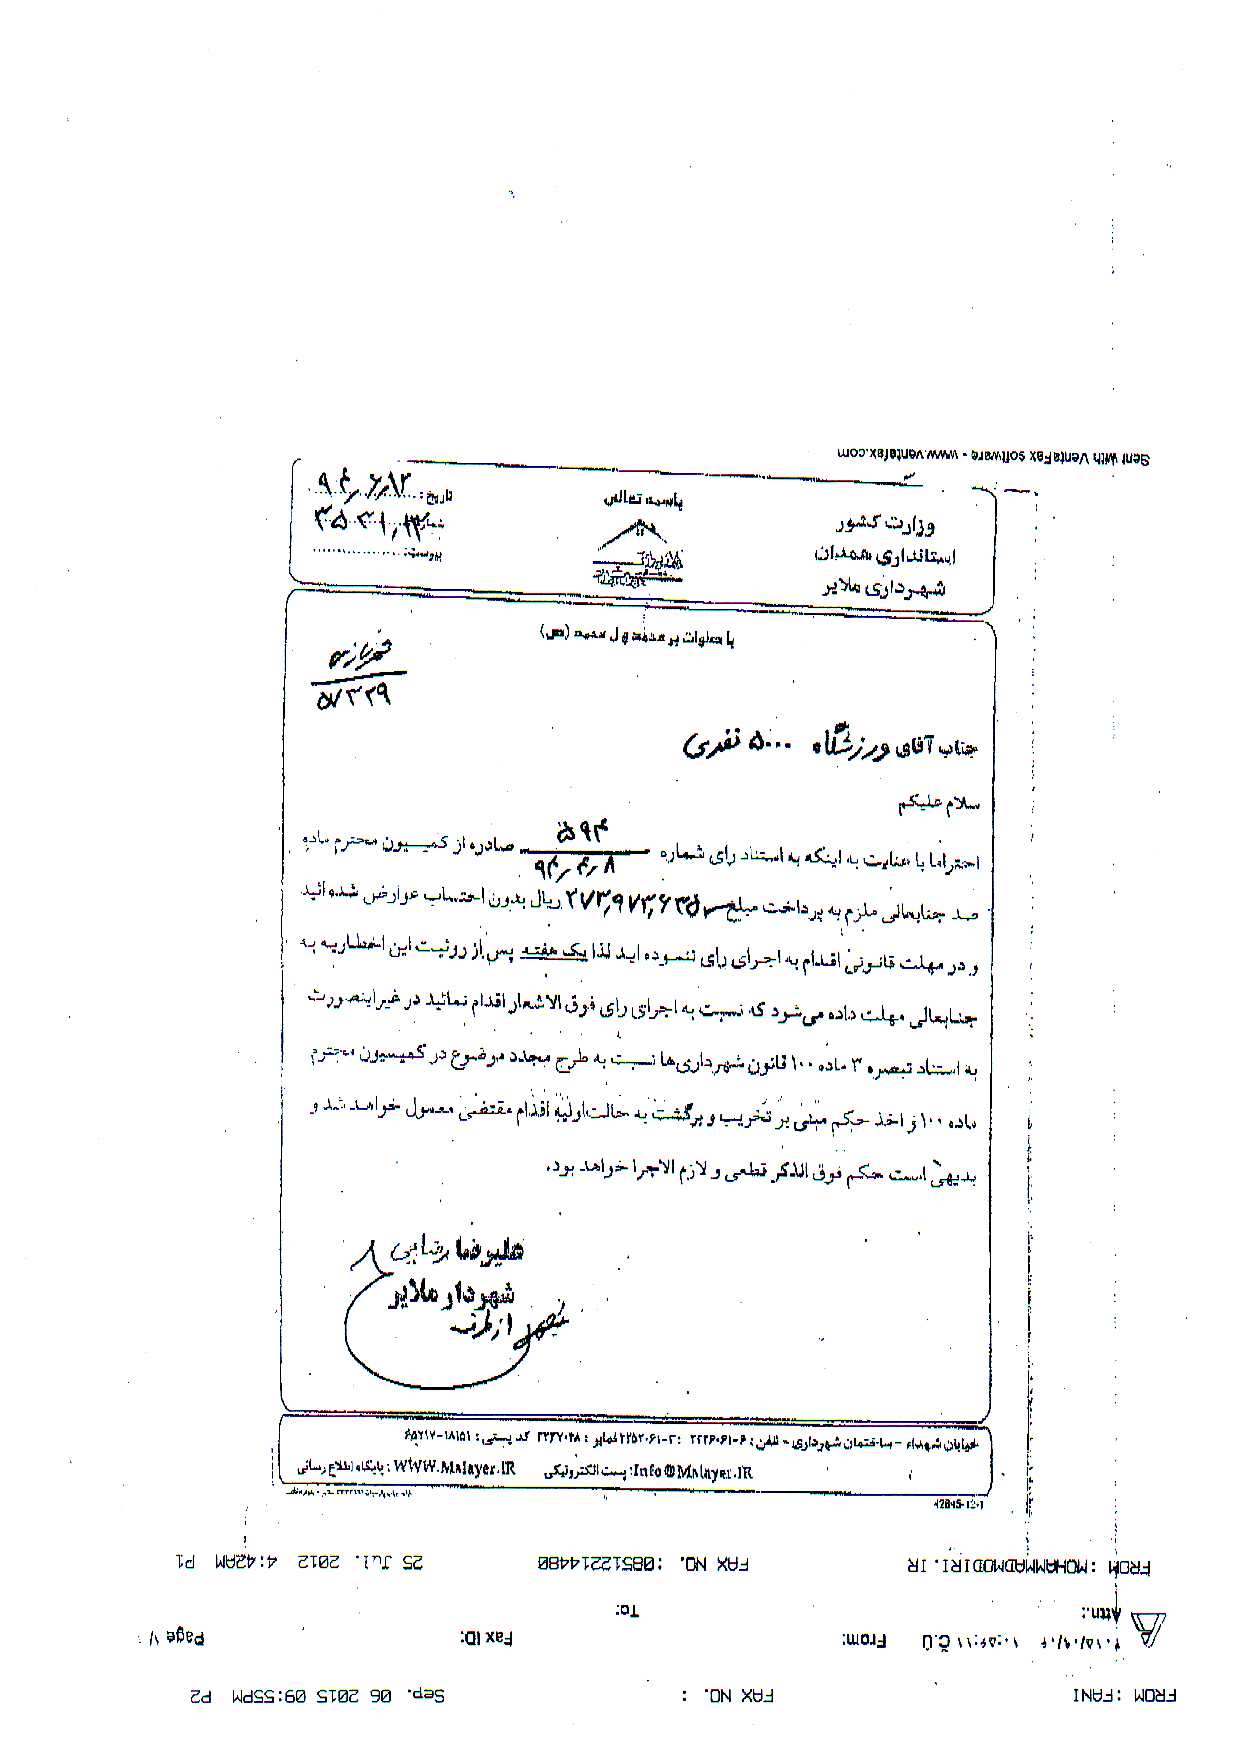 Sent with VentaFax software - www.ventafax.com
باسمه تعالی
وزارت کشور
استانداری همدان
شهرداری ملایر
تاریخ: ۹۴٫۶٫۱۲
شماره: ۳۵۳۱٫۱۲
پیوست:
با صلوات بر محمد و آل محمد (ص)
۵۷۳۲۹
جناب آقای ورزشگاه ۵۰۰۰ نفری
سلام علیکم
احتراما با عنایت به اینکه به استناد رای شماره ۵۹۴ ۹۴٫۴٫۸ صادره از کمیسیون محترم ماده
صد جنابعالی ملزم به پرداخت مبلغ ۲۷۳٫۹۷۳٫۶۳۵ ریال بدون احتساب عوارض شده‌ائید
و در مهلت قانونی اقدام به اجرای رای ننموده اید لذا یک هفته پس از روئیت این اخطاریه به
جنابعالی مهلت داده می‌شود که نسبت به اجرای رای فوق الاشعار اقدام نمائید در غیر اینصورت
به استناد تبصره ۳ ماده ۱۰۰ قانون شهرداری‌ها نسبت به طرح مجدد موضوع در کمیسیون محترم
ماده ۱۰۰ و اخذ حکم مبنی بر تخریب و برگشت به حالت اولیه اقدام مقتضی معمول خواهد شد و
بدیهی است حکم فوق الذکر قطعی و لازم الاجرا خواهد بود.
علیرضا رضایی
شهردار ملایر
از طرف
خیابان شهداء - ساختمان شهرداری - تلفن: ۶-۲۲۲۶۰۶۱ :۳-۲۲۵۲۰۶۱ نمابر: ۲۲۲۷۰۲۸ کد پستی: ۱۸۱۵۱-۶۵۷۱۷
پست الکترونیکی: Info@Malayer.IR پایگاه اطلاع رسانی: WWW.Malayer.IR
12845-12-1
FROM :MOHAMMADMODIRI.IR FAX NO. :08512214480 25 Jul. 2012 4:42AM P1
Attn.: To:
From: Fax ID: Page
FROM :FANI FAX NO. : Sep. 06 2015 09:55PM P2